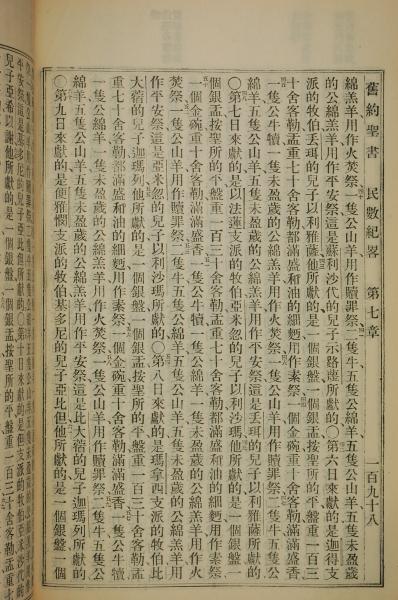 舊約聖書 民數紀畧 第七章 一百九十八
綿羔羊用作火焚祭、一隻公山羊用作贖罪祭、二隻牛五隻公綿羊五隻公山羊五隻未盈歲
的公綿羔羊用作平安祭這是蘇利沙代的兒子示路蔑所獻的○第六日來獻的是迦得支
派的牧伯丟珥的兒子以利雅薩他所獻的是一個銀盤一個銀盂按聖所的平盤重一百三
十舍客勒盂重七十舍客勒都滿盛和油的細麫用作素祭一個金碗重十舍客勒滿盛香、
一隻公牛犢、一隻公綿羊一隻未盈歲的公綿羔羊用作火焚祭、一隻公山羊用作贖罪祭二隻牛五隻公
綿羊五隻公山羊五隻未盈歲的公綿羔羊用作平安祭這是丟珥的兒子以利雅薩所獻的
○第七日來獻的是以法蓮支派的牧伯亞米忽的兒子以利沙瑪他所獻的是一個銀盤一
個銀盂按聖所的平盤重一百三十舍客勒盂重七十舍客勒都滿盛和油的細麫用作素祭
一個金碗重十舍客勒滿盛香、一隻公牛犢、一隻公綿羊、一隻未盈歲的公綿羔羊用作火
焚祭、一隻公山羊用作贖罪祭二隻牛五隻公綿羊五隻公山羊五隻未盈歲的公綿羔羊用
作平安祭這是亞米忽的兒子以利沙瑪所獻的○第八日來獻的是瑪拿西支派的牧伯比
大蓿的兒子迦瑪列他所獻的是一個銀盤一個銀盂按聖所的平盤重一百三十舍客勒盂
重七十舍客勒都滿盛和油的細麫用作素祭一個金碗重十舍客勒滿盛香一隻公牛犢
一隻公綿羊一隻未盈歲的公綿羔羊用作火焚祭、一隻公山羊用作贖罪祭二隻牛五隻公
綿羊五隻公山羊五隻未盈歲的公綿羔羊用作平安祭這是比大蓿的兒子迦瑪列所獻的
○第九日來獻的是便雅憫支派的牧伯基多尼的兒子亞比但他所獻的是一個銀盤一個
銀盂按聖所的平盤重一百三十舍客勒盂重七
平安祭這是基多尼的兒子亞比但所獻的○第十日來獻的是但支派的牧伯亞米沙代的
兒子亞希以謝他所獻的是一個銀盤一個銀盂按聖所的平盤重一百三十舍客勒盂重七